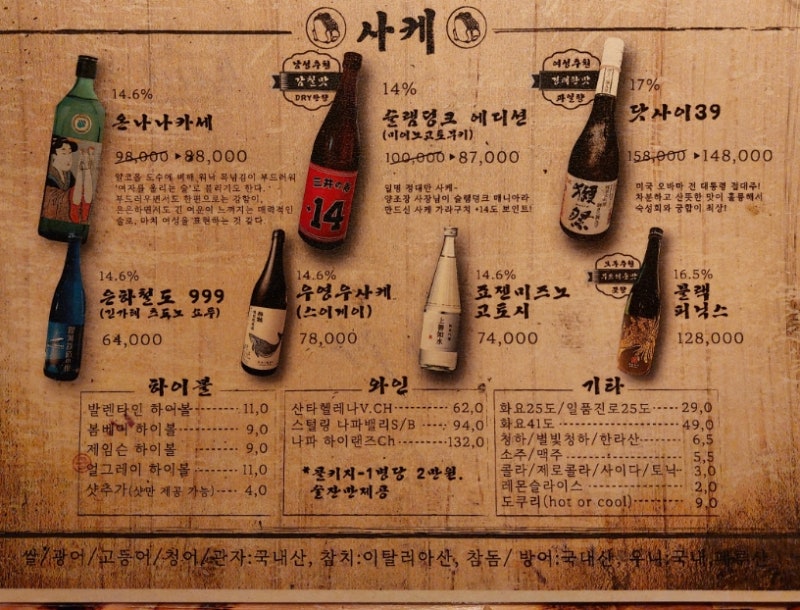 사케
남성추원
감칠맛
DRY한향
여성추원
과일향
14.6%
온나나카세
98,000 ▸88,000
알코올 도수에 비해 워낙 목넘김이 부드러워
'여자를 울리는 술'로 불리기도 한다.
부드러우면서도 한편으로는 강함이,
은은하면서도 긴 여운이 느껴지는 매력적인
술로, 마치 여성을 표현하는 것 같다.
14%
슬램덩크 에디션
(미이노고토부키)
100,000 ▸87,000
일명 정대만 사케~
양조장 사장님이 슬램덩크 매니아라
만드신 사케 가라구치 +14도 포인트!
三井の寿
14
17%
닷사이39
158,000 ▸148,000
미국 오바마 전 대통령 접대주!
차분하고 산뜻한 맛이 훌륭해서
숙성회와 궁합이 최상!
獺祭
14.6%
은하철도 999
(긴가테츠도노 요루)
64,000
14.6%
우영우사케
(스이게이)
78,000
14.6%
죠젠미즈노
고토시
74,000
上善如水
16.5%
블랙
피닉스
128,000
하이볼
발렌타인 하이볼 11,0
봄베이 하이볼 9,0
제임슨 하이볼 9,0
얼그레이 하이볼 11,0
샷추가(샷만 제공 가능) 4,0
와인
산타헬레나V.CH 62,0
스털링 나파밸리S/B 94,0
나파 하이랜즈Ch 132,0
*콜키지-1병당 2만원.
술잔만제공
기타
화요25도/일품진로25도 29,0
화요41도 49,0
청하/별빛청하/한라산 6,5
소주/맥주 5,5
콜라/제로콜라/사이다/토닉 3,0
레몬슬라이스 2,0
도쿠리(hot or cool) 9,0
쌀/광어/고등어/청어/관자:국내산, 참치:이탈리아산, 참돔/ 방어:국내산, 우니:국내,페루산